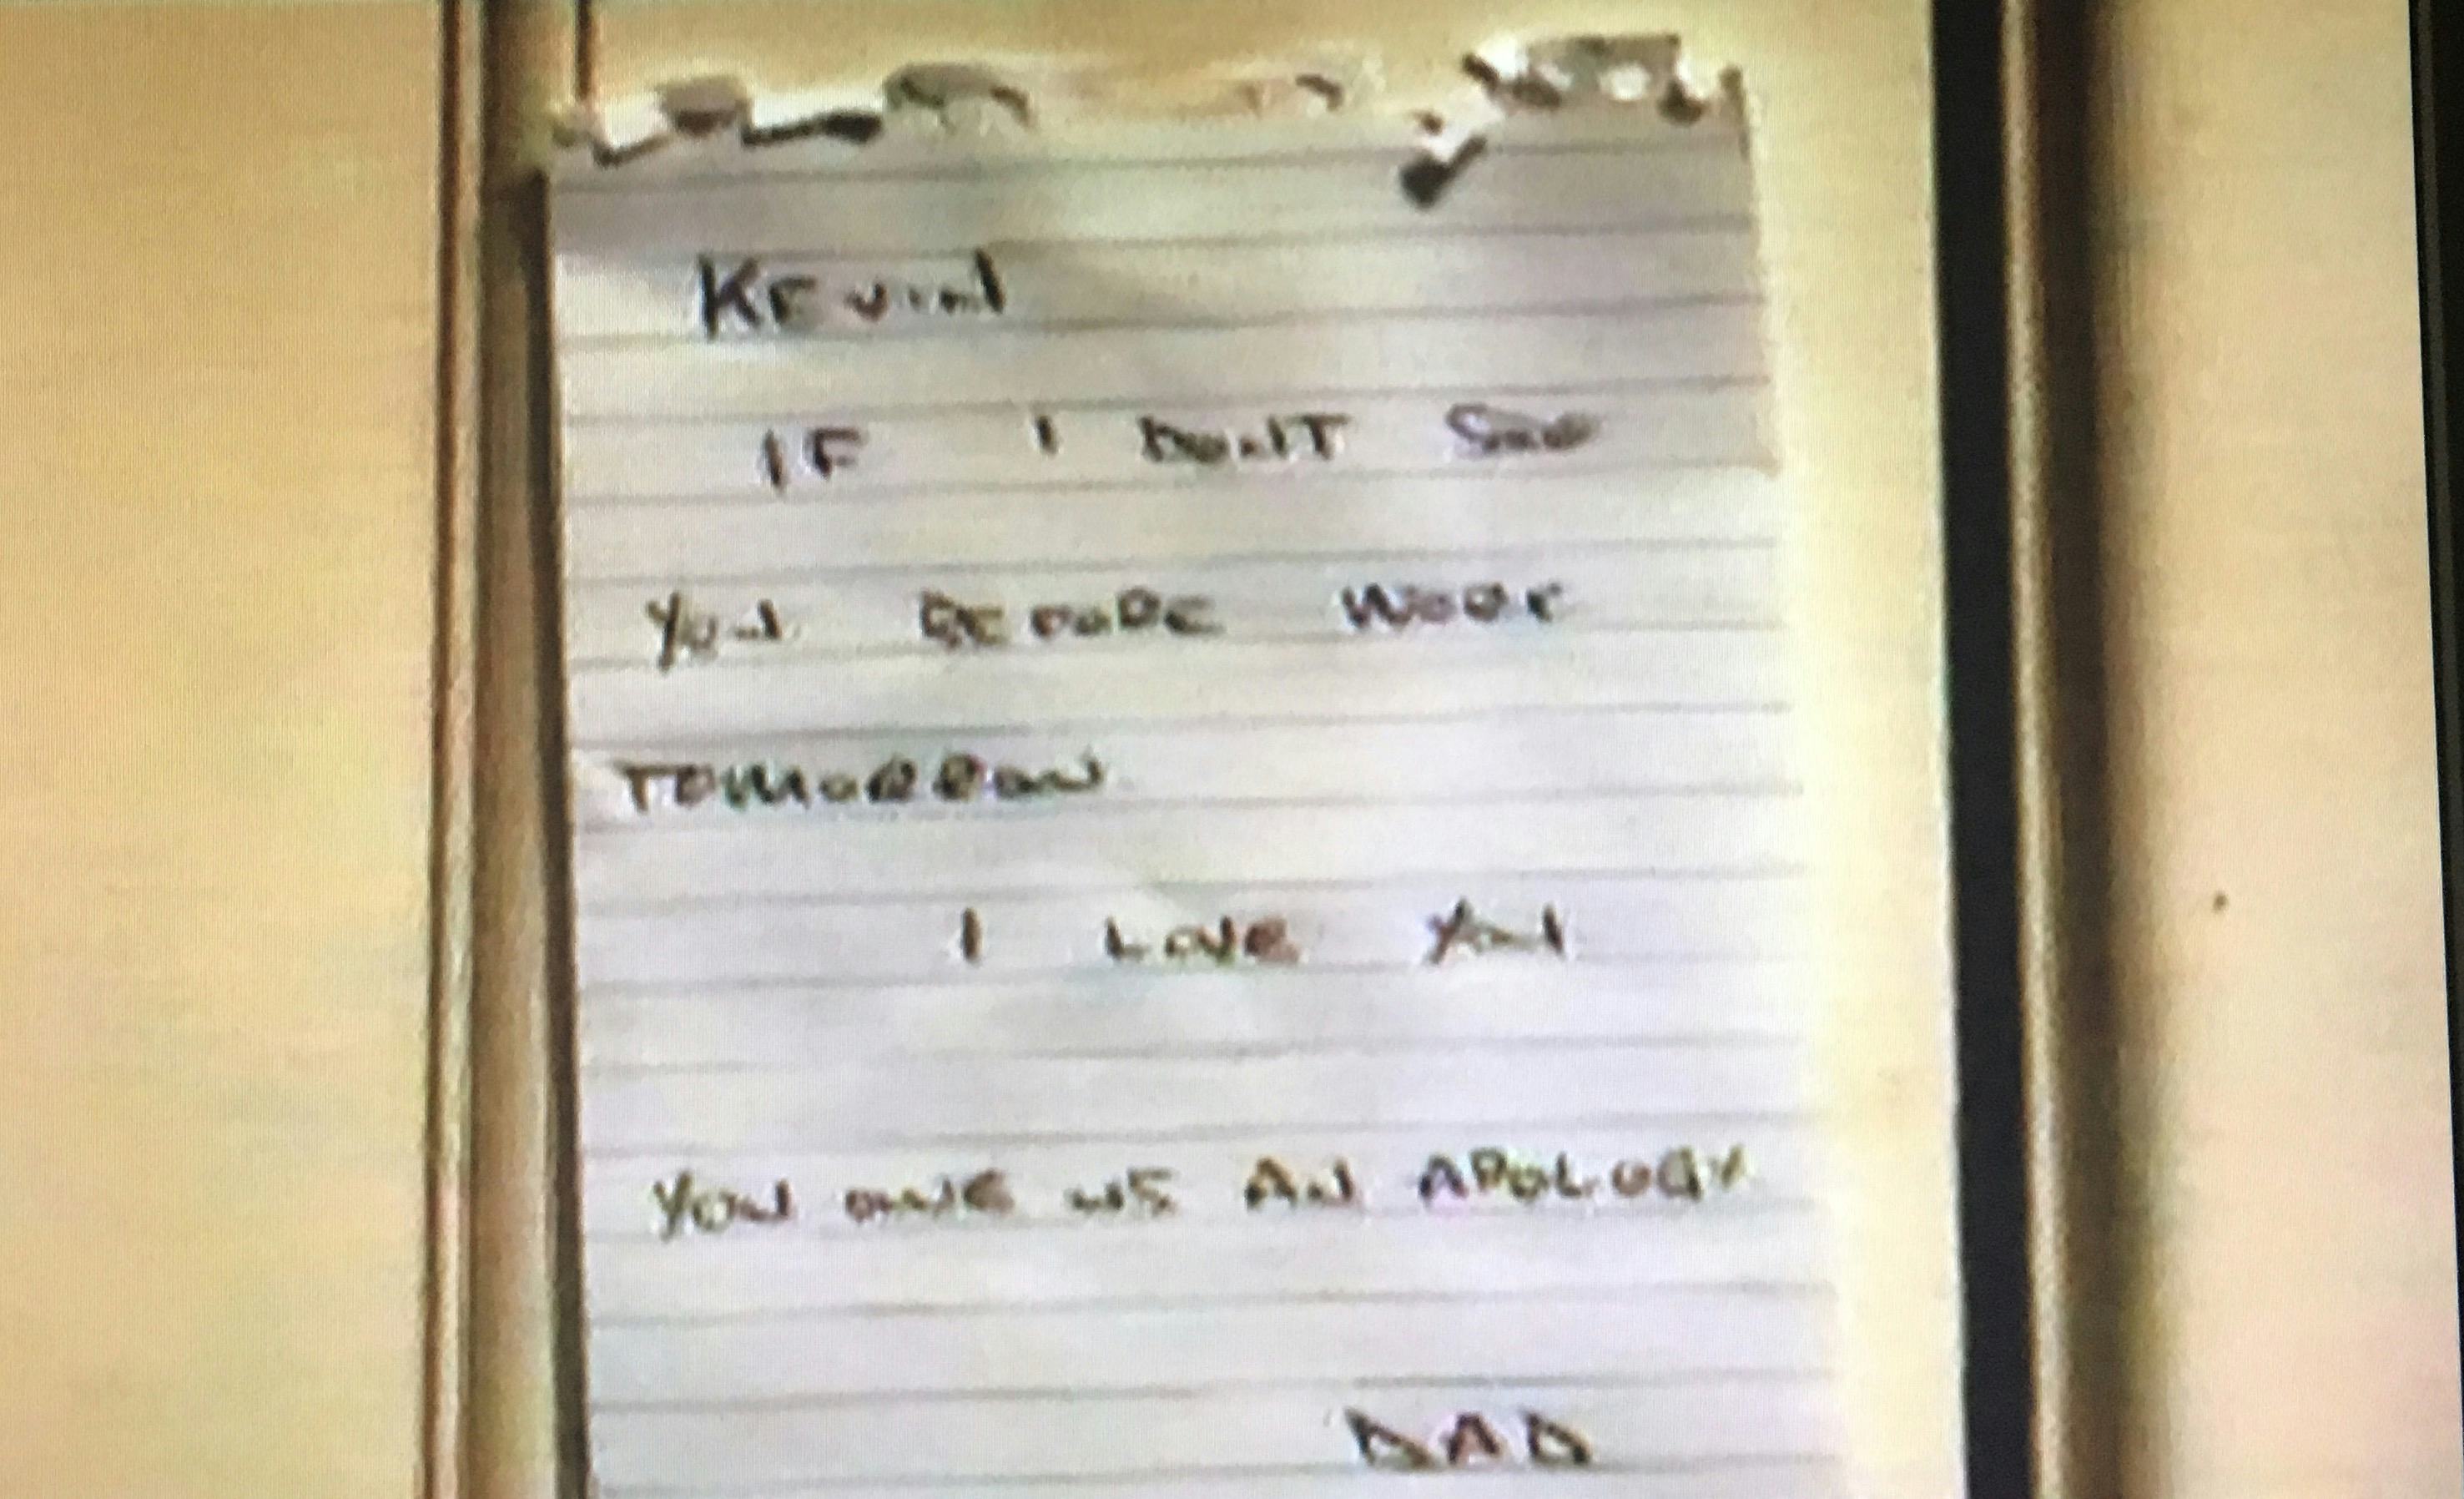 KEVIN
IF I DON'T SEE
YOU BEFORE WORK
TOMORROW
I LOVE YOU
YOU OWE US AN APOLOGY
DAD